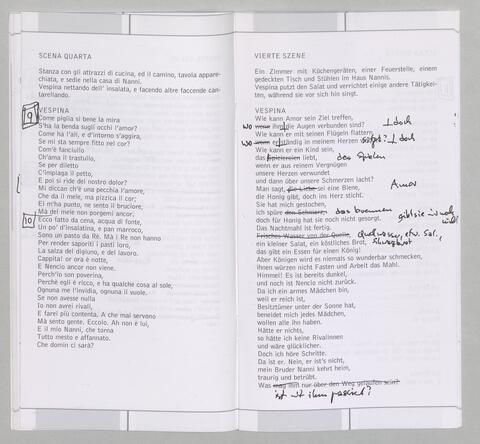 SCENA QUARTA
Stanza con gli attrazzi di cucina, ed il camino, tavola appare-
chiata, e sedie nella casa di Nanni.
Vespina nettando dell' insalata, e facendo altre faccende can-
tarellando.
VESPINA
9 Come piglia sì bene la mira
S'ha la benda sugli occhi l'amor?
Come ha l'ali, e d'intorno s'aggira,
Se mi sta sempre fitto nel cor?
Com'è fanciullo
Ch'ama il trastullo,
Se per diletto
C'impiaga il petto,
E poi si ride del nostro dolor?
Mi diccan ch'è una pecchia l'amore,
Che dà il mele, ma pizzica il cor;
Ei m'ha punto, ne sento il bruciore,
Ma del mele non porgemi ancor.
10 Ecco fatto da cena, acqua di fonte,
Un po' d'insalatina, e pan marroco,
Sono un pasto da Rè. Ma i Re non hanno
Per render saporiti i pasti loro,
La salza del digiuno, e del lavoro.
Cappita! or ora è notte,
E Nencio ancor non viene.
Perch'io son poverina,
Perchè egli è ricco, e ha qualche cosa al sole
Ognuna me l'invidia, ognuna il vuole.
Se non avesse nulla
Io non avrei rivali,
E farei più contenta. A che mai servono
Mà sento gente. Eccolo. Ah non è lui,
E il mio Nanni, che torna
Tutto mesto e affannato.
Che domin ci sarà?
VIERTE SZENE
Ein Zimmer mit Küchengeräten, einer Feuerstelle, einem
gedeckten Tisch und Stühlen im Haus Nannis.
Vespina putzt den Salat und verrichtet einige andere Tätigkei-
ten, während sie vor sich hin singt.
VESPINA
Wie kann Amor sein Ziel treffen,
wo wenn ihm die Augen verbunden sind? doch
Wie kann er mit seinen Flügeln flattern,
wo wenn er ständig in meinem Herzen doch
Wie kann er ein Kind sein,
das Spielereien liebt, das Spielen
wenn er aus reinem Vergnügen
unsere Herzen verwundet
und dann über unsere Schmerzen lacht?
Man sagt, die Liebe sei eine Biene, Amor
die Honig gibt, doch ins Herz sticht.
Sie hat mich gestochen,
ich spüre den Schmerz, das brennen
doch für Honig hat sie noch nicht gesorgt. gibt sie mir noch
Das Nachtmahl ist fertig.
Frisches Wasser von der Quelle, Quellwasser, etw. Sal.,
ein kleiner Salat, ein köstliches Brot,
das gibt ein Essen für einen König!
Aber Königen wird es niemals so wunderbar schmecken,
ihnen würzen nicht Fasten und Arbeit das Mahl.
Himmel! Es ist bereits dunkel,
und noch ist Nencio nicht zurück.
Da ich ein armes Mädchen bin,
weil er reich ist,
Besitztümer unter der Sonne hat,
beneidet mich jedes Mädchen,
wollen alle ihn haben.
Hätte er nichts,
so hätte ich keine Rivalinnen
und wäre glücklicher.
Doch ich höre Schritte.
Da ist er. Nein, er ist's nicht,
mein Bruder Nanni kehrt heim,
traurig und betrübt.
Was mag ihm nur über den Weg gelaufen sein?
ist mit ihm passiert?